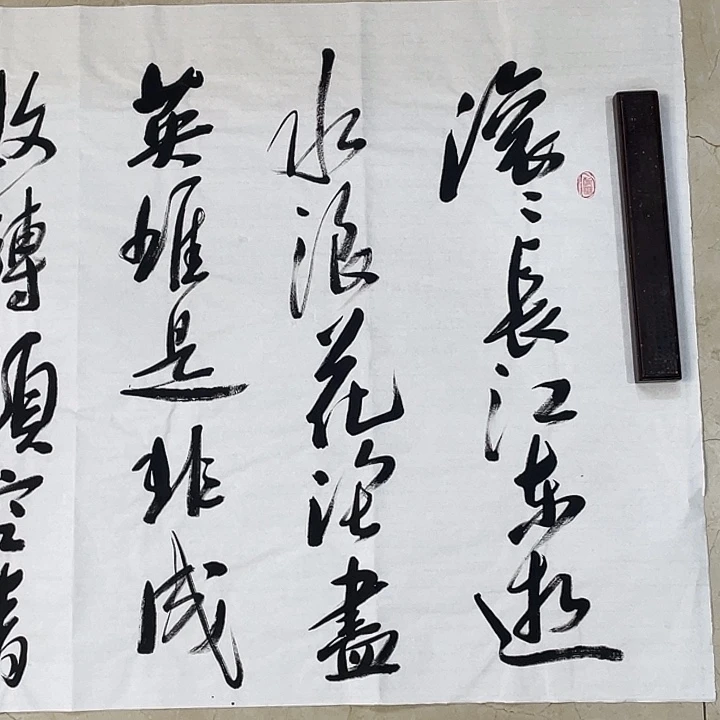 滚〻長江东逝
水浪花淘盡
英雄是非成
敗轉頭空青